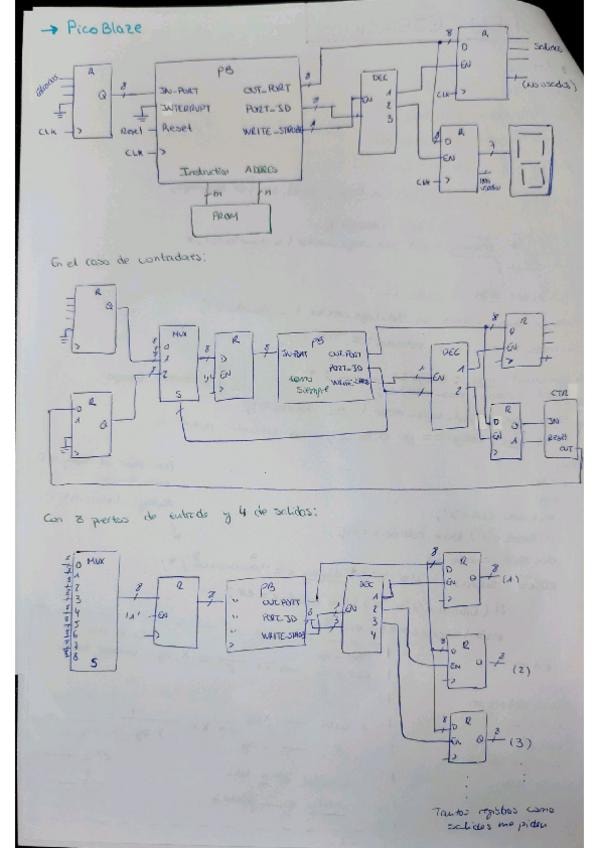 → PicoBlaze
R
Q
8
CLK
PB
IN-PORT
INTERRUPT
Reset
Reset
CLK
OUT_PORT
PORT_ID
WRITE_STROBE
Instruction ADDRES
m
n
PROM
8
8
1
DEC
EN
1
2
3
8
R
D
EN
CLK
Salidas
(No usadas)
8
R
D
EN
CLK
7
En el caso de contadores:
R
Q
R
Q
MUX
8
0
1
2
S
8
R
D
'1'
EN
8
PB
IN-PORT
OUT-PORT
PORT_ID
como
siempre
DEC
EN
1
2
8
R
D
EN
R
D
EN
0
1
CTR
IN
RESET
OUT
Con 8 puertos de entrada y 4 de salidas:
MUX
0
1
2
3
4
S
8
R
'1'
EN
8
PB
OUT-PORT
PORT-ID
WRITE-STROB
DEC
EN
1
2
3
4
8
R
D
EN
Q
8
(1)
8
R
D
EN
Q
8
(2)
8
R
D
EN
Q
8
(3)
Tantos registros como
salidas me piden